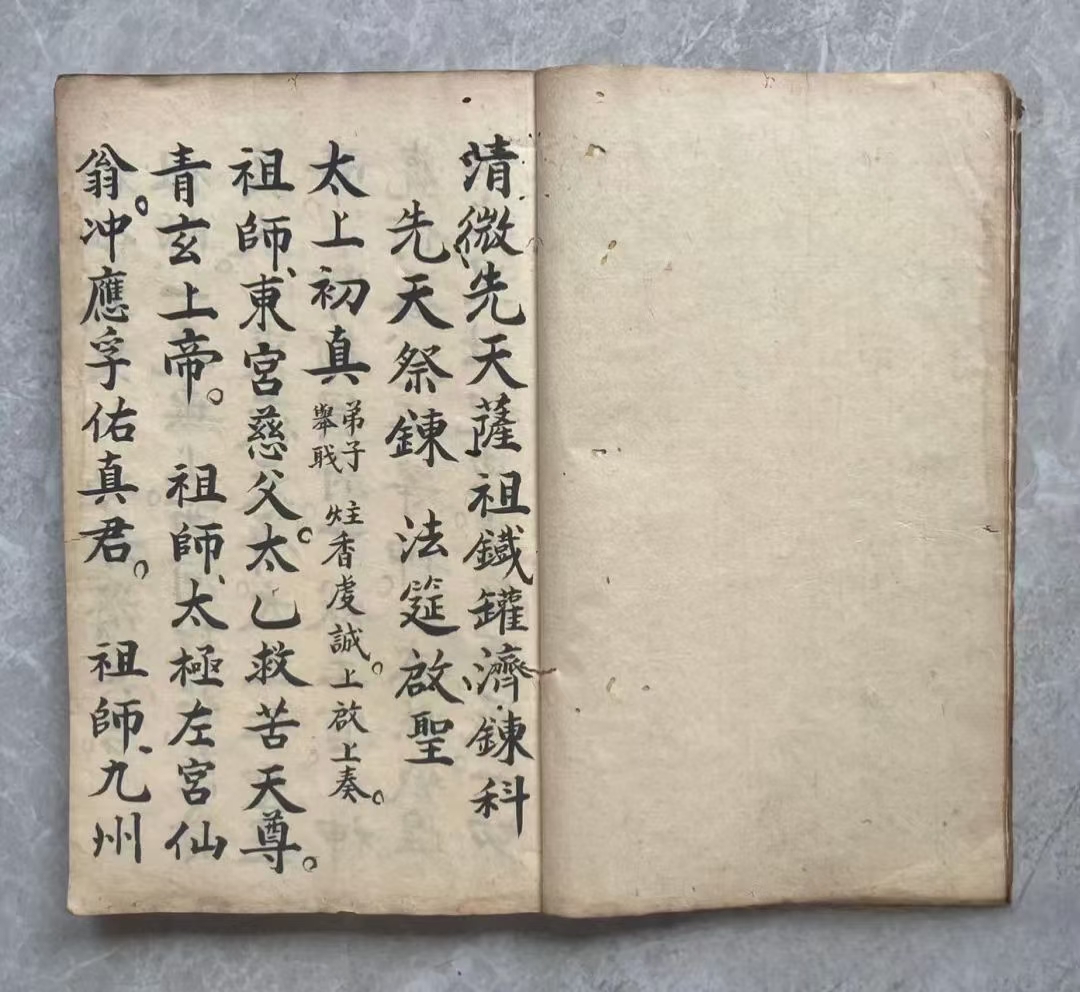 清微先天薩祖鐵罐濟鍊科
先天祭鍊 法筵啟聖
太上初真 弟子舉職 炷香虔誠。上啟上奏。
祖師、東宮慈父。太乙救苦天尊。
青玄上帝。 祖師、太極左宮仙
翁。冲應孚佑真君。 祖師、九州